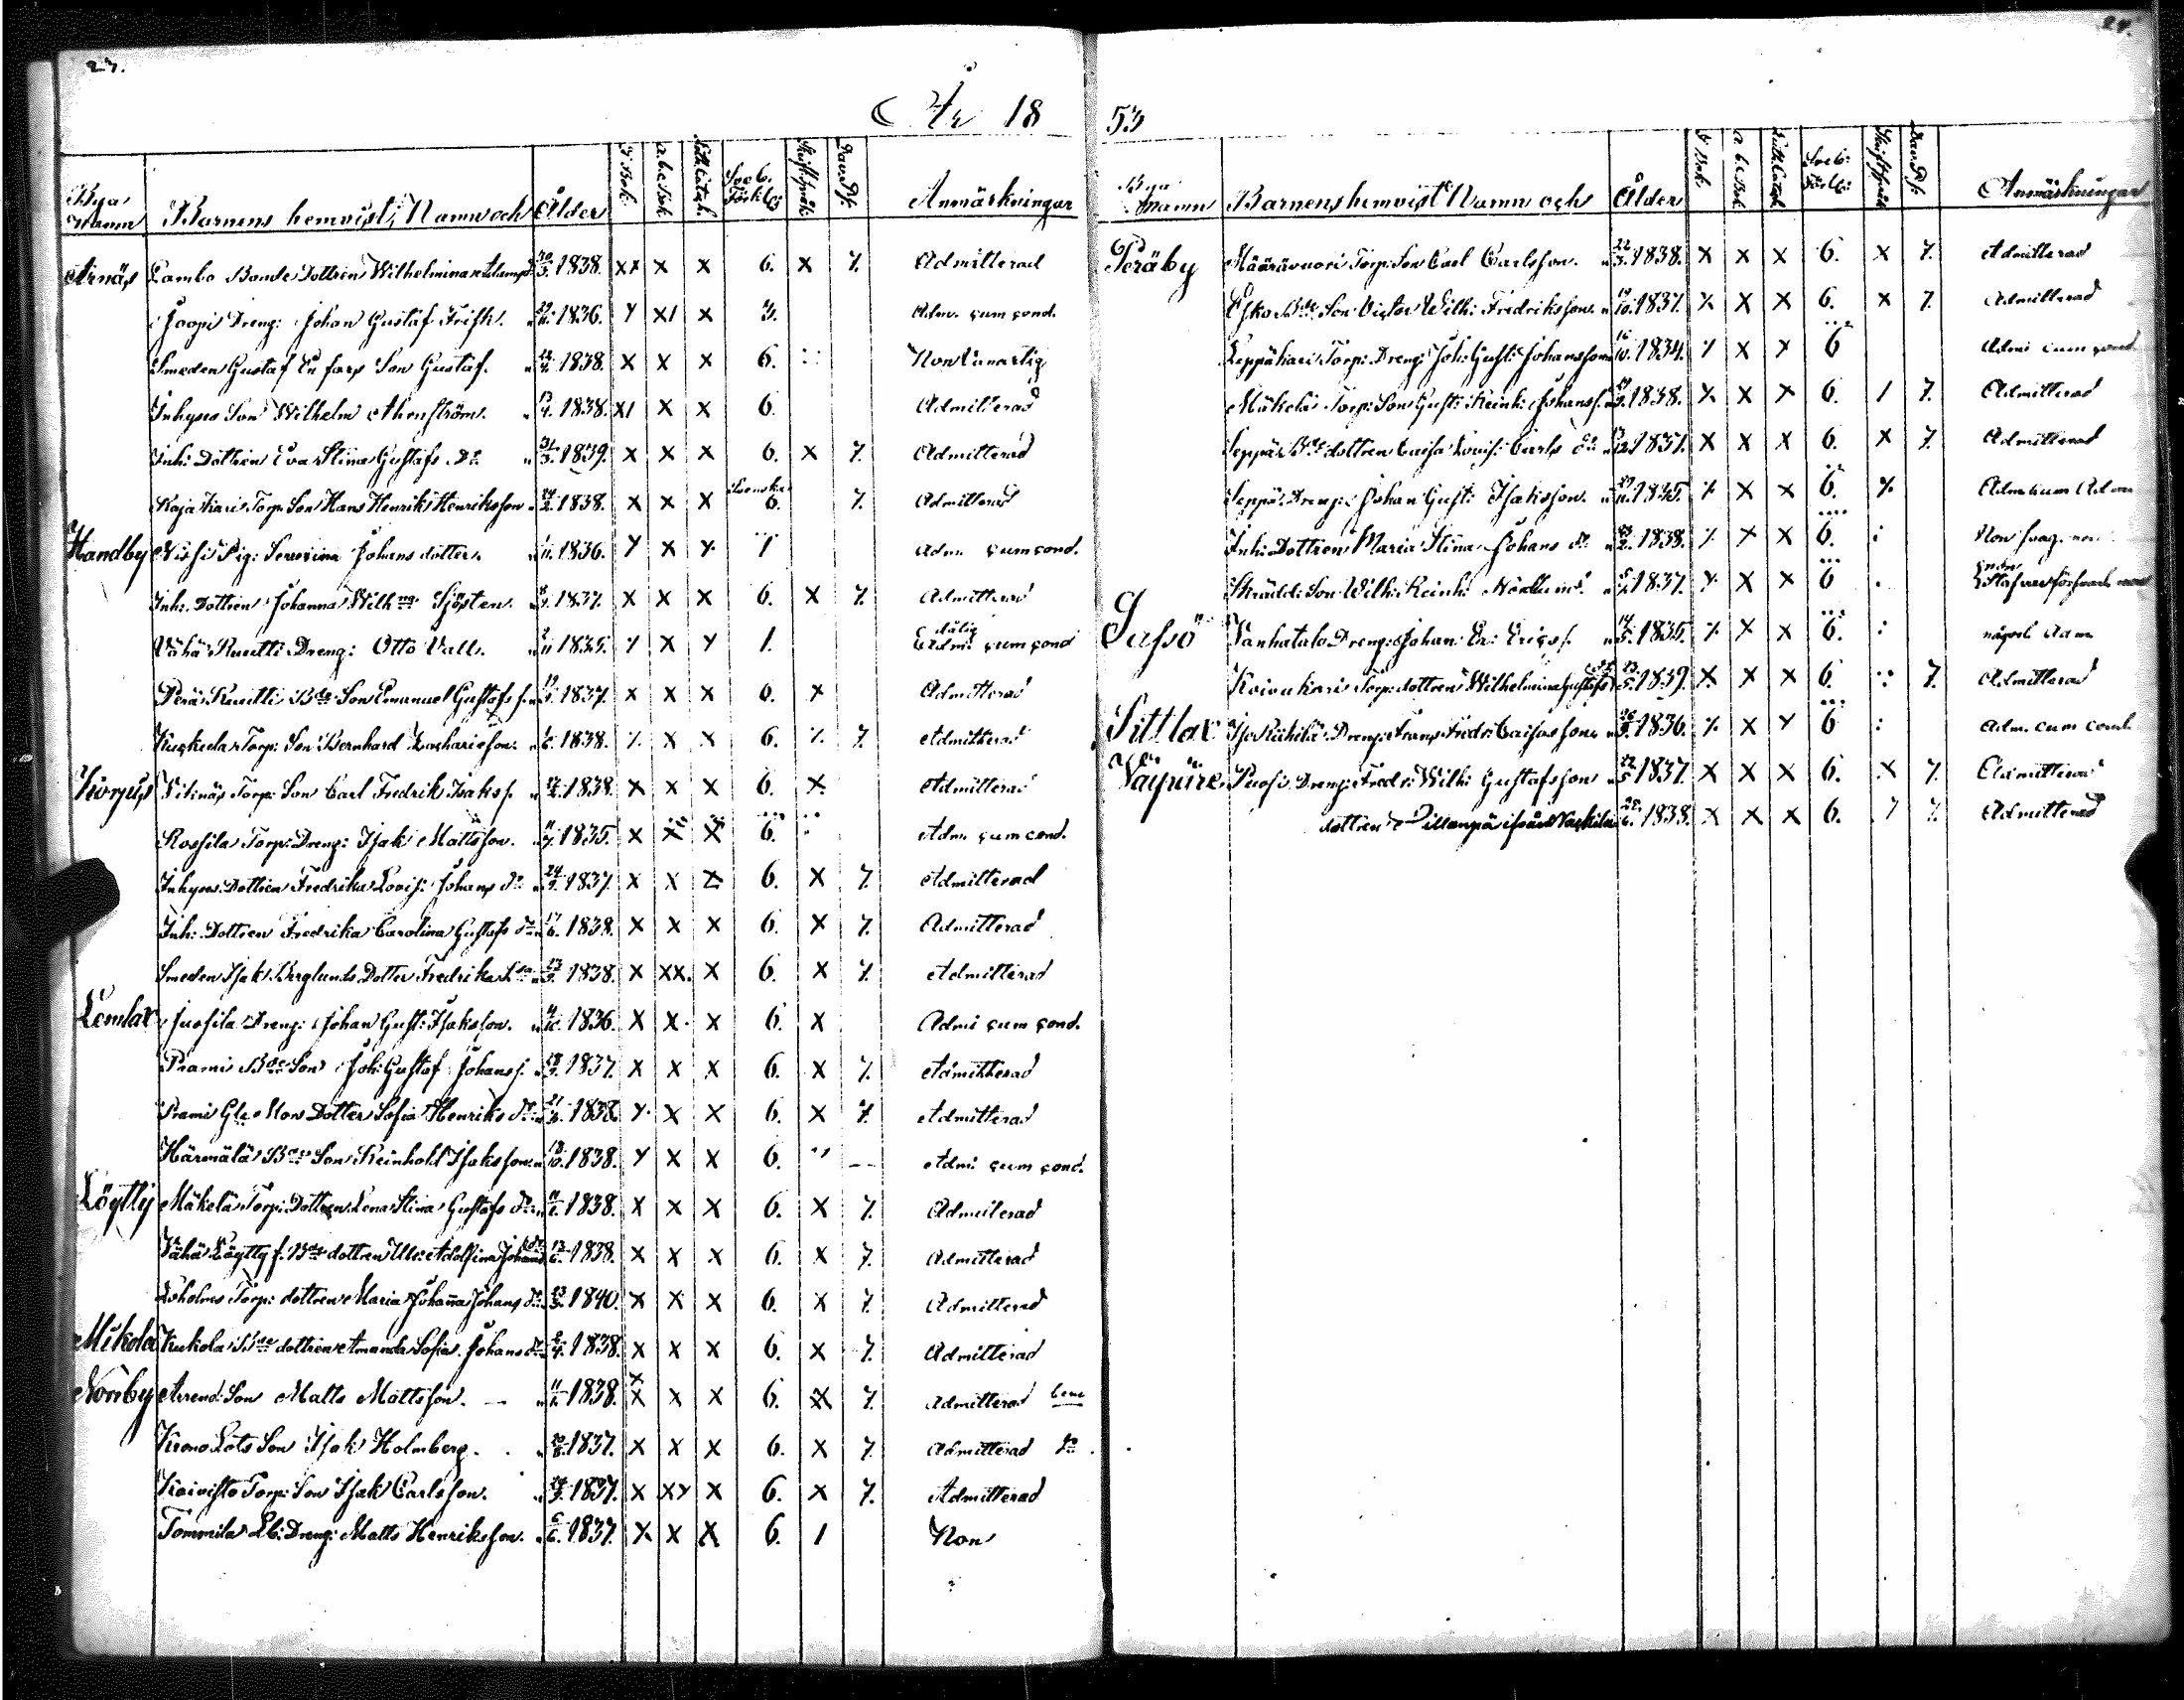 27.
År 18
Bya Namn Barnens hemvist, Namn och Ålder I Bok. a.b.c. Bok. Luth. Catech. Sveb. Förkl. Skriftspråk Dav. Ps. Anmärkningar
Arnäs Lambo Bonde Dottren Wilhelmina 1838. xx x x 6. x 7. Admitterad
Jaopi Dreng: Johan Gustaf Frisk. 1836. y x1 x 3. Adm. cum cond.
Smeden Gustaf Son Gustaf. 1838. x x x 6. Non
Inhyses Son Wilhelm Ahrnström. 13/4. 1838. x1 x x 6. Admitterad
Inh: Dottren Eva Stina Gustafs Dr 31/3. 1839. x x x 6. x 7. Admitterad
Kaja kari Torp. Son Hans Henrik Henriksson 1838. x x x Svenska 6. 7. Admitterad
Handby Nissi Pig: Severina Johans dotter. 1836. y x y 1 Adm. cum cond.
Inh: Dottren Johanna Wilhna Sjösten. 1837. x x x 6. x 7. Admitterad
Vähä Ruutti Dreng: Otto Vall. 1835. y x y 1. dålig Adm: cum cond
Perä Ruutti Bde Son Emanuel Gustafss. 1837. x x x 6. x Admitterad
Kuckeda Torp: Son Bernhard Zachariesson. 1838. 7. x x 6. 7. 7. Admitterad
Korpus Viknäs Torp: Son Carl Fredrik Isakss. 1838. x x x 6. x Admitterad
Rossila Torp: Dreng: Isak Mattsson. 1835. x x x 6. Adm. cum cond.
Inhyses Dottren Fredrika Lovis: Johans dr 24/9. 1837. x x x 6. x 7. Admitterad
Inh: Dottren Fredrika Carolina Gustafs dr 17/6. 1838. x x x 6. x 7. Admitterad
Smeden Isak Berglunds Dotter Fredrika 1838. x xx. x 6. x 7. Admitterad
Lemlax Jussila Dreng: Johan Gust: Isaksson. 1836. x x. x 6. x Adm: cum cond.
Prami Bde Son Joh: Gustaf Johanss. 1837. x x x 6. x 7. Admitterad
Prami Gle Mon Dotter Sofia Henriks dr 1838. y. x x 6. x 7. Admitterad
Härmälä Bde Son Reinhold Isaksson. 1838. y x x 6. " Adm: cum cond.
Löytty Mäkelä Torp: Dottren Lena Stina Gustafs dr 1838. x x x 6. x 7. Admitterad
Vähä Löytty f. Bde dottren Ulr: Adolfina Johans dr 1838. x x x 6. x 7. Admitterad
Torp: dottren Maria Johanna Johans dr 1840. x x x 6. x 7. Admitterad
Mikola Kukola Bde dottren Amanda Sofia Johans dr 1838. x x x 6. x 7. Admitterad
Norrby Arrend: Son Matts Mattsson. 1838. x x x x 6. x 7. Admitterad bene
Krono Lots Son Isak Holmberg. 1837. x x x 6. x 7. Admitterad do
Koivisto Torp: Son Isak Carlsson. 1837. x xy x 6. x 7. Admitterad
Tommila Lb: Dreng: Matts Henriksson. 6/6. 1837. x x x 6. 1 Non
53
Bya Namn Barnens hemvist Namn och Ålder I Bok. a.b.c. Bok. Luth. Catech. Sveb: Förkl: Skriftspråk Dav. Ps. Anmärkningar
Peräby Määrävuori Torp: Son Carl Carlsson. 1838. x x x 6. x 7. Admitterad
Esko Bde Son Victor Wilh: Fredriksson. 1837. x x x 6. x 7. Admitterad
Leppäkari Torp: Dreng: Joh: Gust: Johansson 1834. 7 x x 6 Adm: cum cond.
Mäkelä Torp: Son Gust: Reinh: Johanss. 1838. x x x 6. 1 7. Admitterad
Seppä Bde dottren Caisa Lovis: Carls dr 1837. x x x 6. x 7. Admitterad
Seppä Dreng: Johan Gust: Isaksson. 1835. 7. x x 6. 7.
Inh: Dottren Maria Stina Johans dr 1838. 7. x x 6. : Non
Skrädd: Son Wilh: Reinh: Nordlund. 1837. y. x x 6 .
Sassö Vanhatalo Dreng: Johan Er: Ericss. 1835. 7. x x 6. : något Adm
Koivukari Torp: dottren Wilhelmina Gustafs dr 1839. x x x 6. 7. Admitterad
Sittlax Iso Kihilä Dreng: Frans Fredr: Caisasson 1836. 7. x y 6 : Adm. cum cond.
Vaipure Puosi Dreng: Fredr: Wilh: Gustafsson 1837. x x x 6. x 7. Admitterad
dottren 1838. x x x 6. 7 7. Admitterad